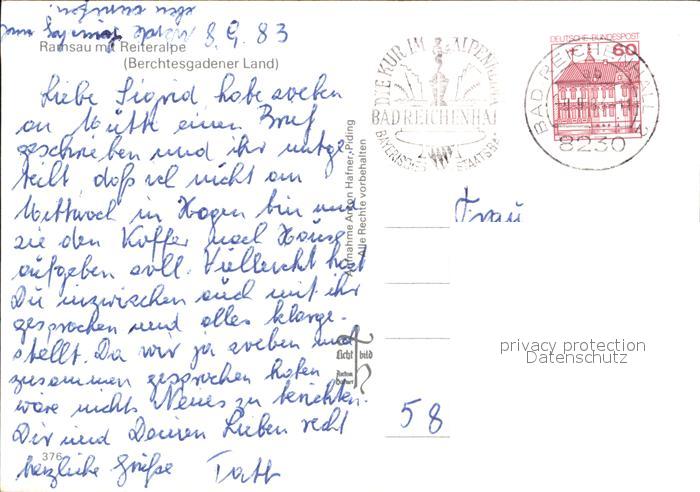 8.9.83
Ramsau mit Reiteralpe
(Berchtesgadener Land)
Liebe Sigrid, habe soeben
an Mutti einen Brief
geschrieben und ihr mitge-
teilt, daß ich nicht am
Mittwoch in Hagen bin und
sie den Koffer nach Hause
aufgeben soll. Vielleicht hast
Du inzwischen auch mit ihr
gesprochen und alles klarge-
stellt. Da wir ja soeben
zusammen gesprochen haben
wäre nichts Neues zu berichten.
Dir und Deinen Lieben recht
herzliche Grüße
376
Aufnahme Anton Hafner, Piding
Alle Rechte vorbehalten
Licht bild
DIE KUR IM ALPENKLIMA
BAD REICHENHALL
BAYERISCHES STAATSBAD
DEUTSCHE BUNDESPOST
60
BAD REICHENHALL
8230
Frau
privacy protection
Datenschutz
58